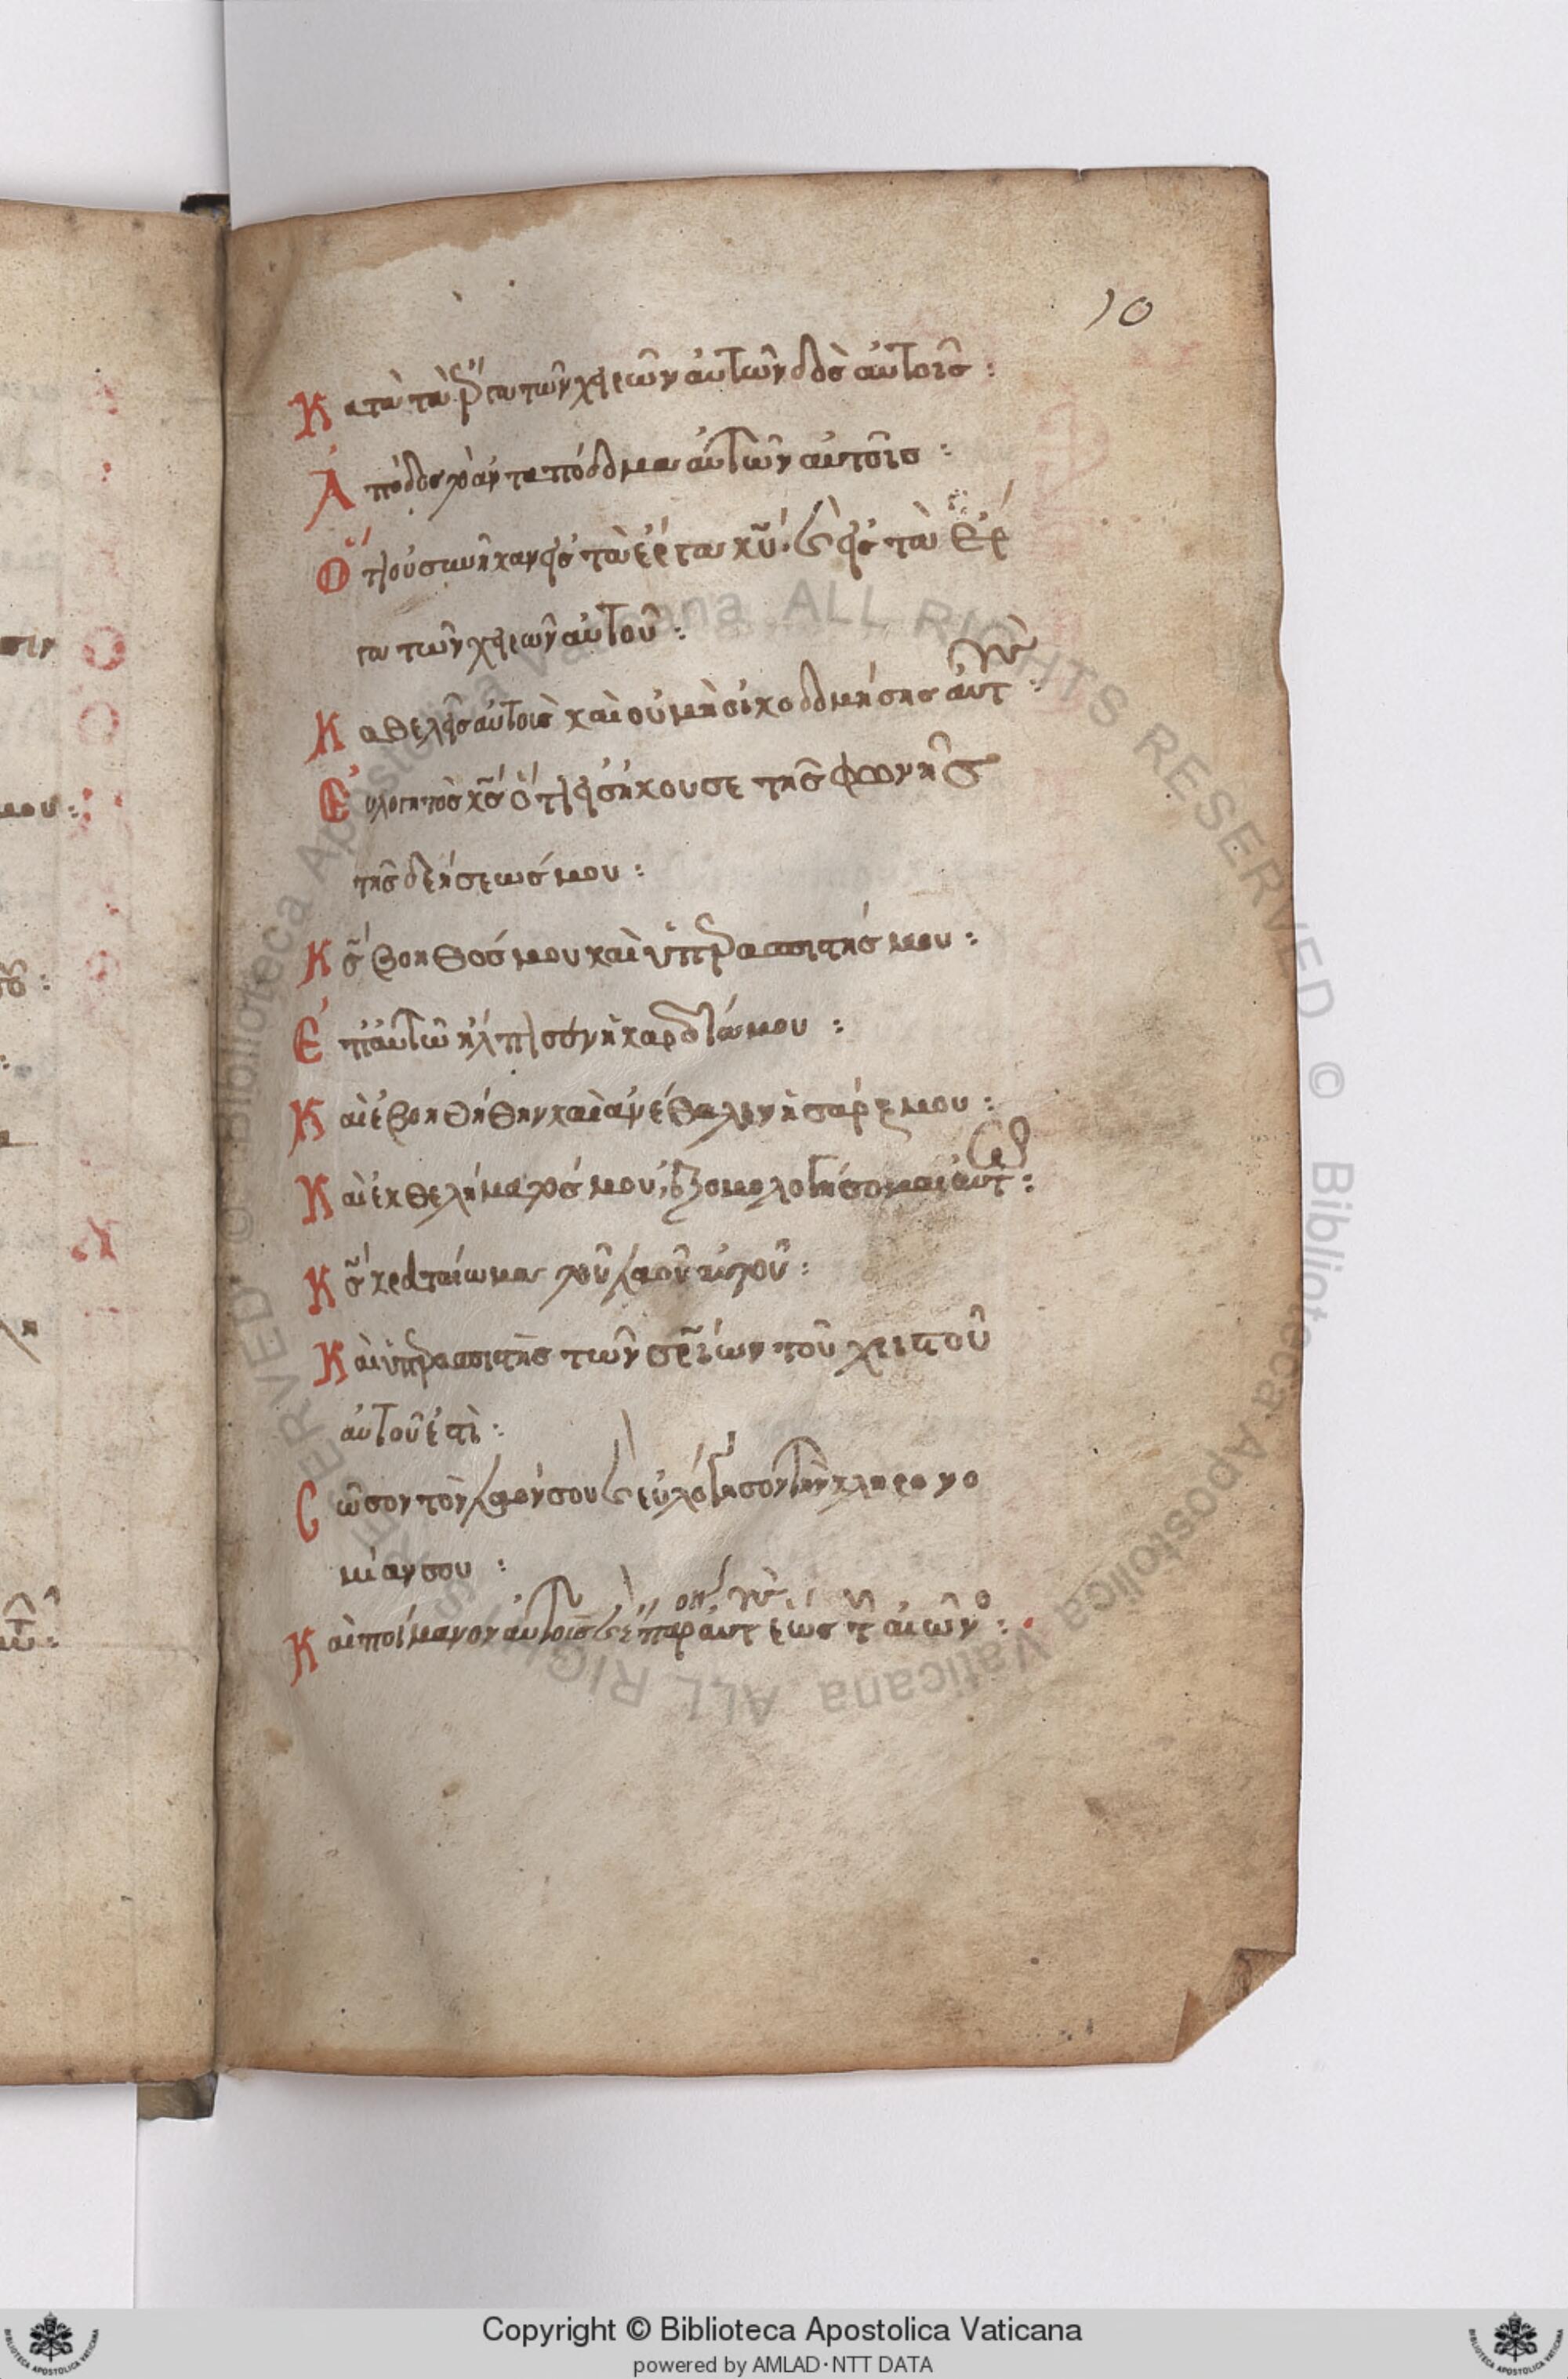 10
Κατὰ τὰ ἔργα τῶν χειρῶν αὐτῶν δὸς αὐτοῖς :
Ἀπόδος τὸ ἀνταπόδομα αὐτῶν αὐτοῖς :
Ὅτι οὐ συνῆκαν εἰς τὰ ἔργα κυ̅· καὶ εἰς τὰ ἔρ
γα τῶν χειρῶν αὐτοῦ :
Καθελεῖς αὐτοὺς καὶ οὐ μὴ οἰκοδομήσῃς αὐτοὺς :
Εὐλογητὸς κς̅ ὅτι εἰσήκουσε τῆς φωνῆς
τῆς δεήσεώς μου :
Κς̅ βοηθός μου καὶ ὑπερασπιστής μου :
Ἐπ' αὐτῷ ἤλπισεν ἡ καρδία μου :
Καὶ ἐβοηθήθην καὶ ἀνέθαλεν ἡ σάρξ μου :
Καὶ ἐκ θελήματός μου ἐξομολογήσομαι αὐτῷ :
Κς̅ κραταίωμα τοῦ λαοῦ αὐτοῦ :
Καὶ ὑπερασπιστὴς τῶν σρ̅ιων τοῦ χριστοῦ
αὐτοῦ ἐστὶ :
Σῶσον τὸν λαόν σου καὶ εὐλόγησον τὴν κληρονο
μίαν σου :
Καὶ ποίμανον αὐτοὺς καὶ ἔπαρον αὐτοὺς ἕως τοῦ αἰῶνο :
Copyright © Biblioteca Apostolica Vaticana
powered by AMLAD·NTT DATA